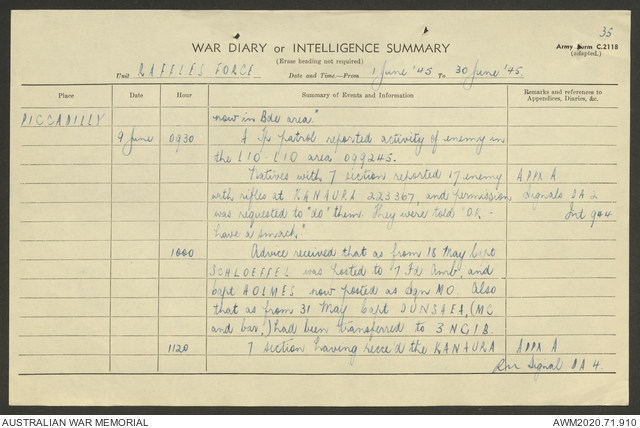 35
WAR DIARY or INTELLIGENCE SUMMARY
Army Form C.2118
(Erase heading not required)
(adapted.)
Unit RAFFLES FORCE Date and Time—From 1 June '45 To 30 June '45.
Place Date Hour Summary of Events and Information Remarks and references to Appendices, Diaries, &c.
PICCADILLY now in Bde area."
9 June 0930 A Tp patrol reported activity of enemy in
the LIO - LIO area 099245.
Natives with 7 section reported 17 enemy APPX A
with rifles at KANAURA 223367, and permission Signals DA 2
was requested to "do" them. They were told "O.K. - Int 944
have a smack."
1000 Advice received that as from 18 May Capt
SCHLOEFFEL was posted to 7 Fd Amb, and
Capt HOLMES now posted as Sqn MO. Also
that as from 31 May Capt (MC
and bar,) had been transferred to 3 NGIB.
1120 7 Section having recce'd the KANAURA APPX A
Signal DA 4.
AUSTRALIAN WAR MEMORIAL AWM2020.71.910